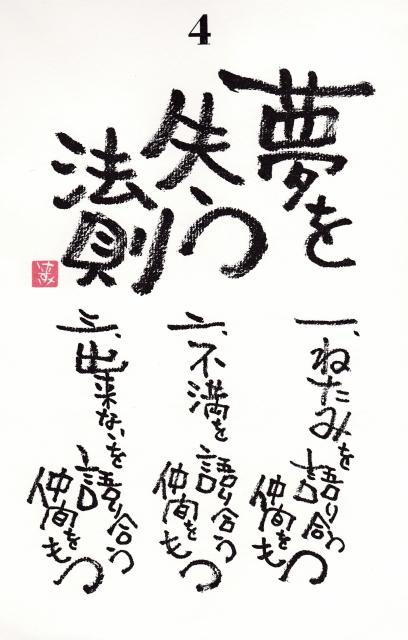 4
夢を
失う
法則
一、ねたみを
語り合う
仲間をもつ
二、不満を
語り合う
仲間をもつ
三、出来ないを
語り合う
仲間をもつ